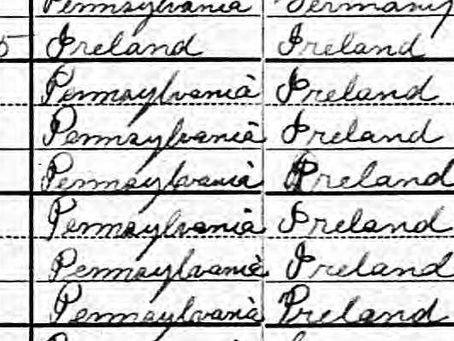 Pennsylvania Germany
5 Ireland Ireland
Pennsylvania Ireland
Pennsylvania Ireland
Pennsylvania Ireland
Pennsylvania Ireland
Pennsylvania Ireland
Pennsylvania Ireland